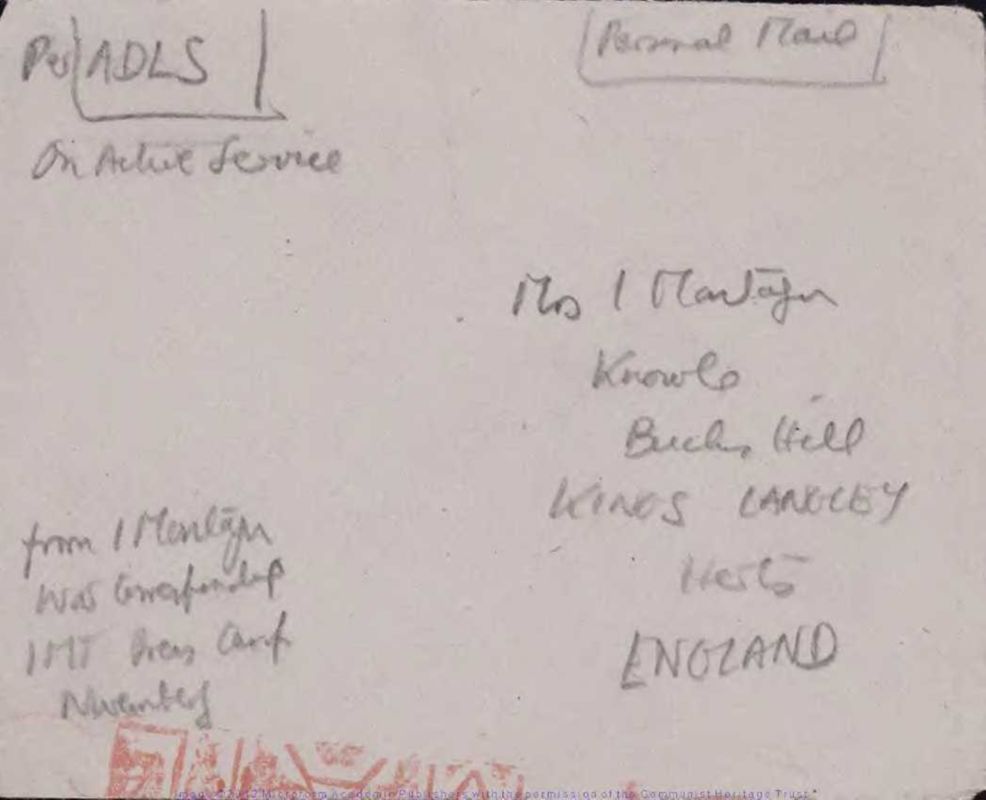 Per ADLS
Personal Mail
On Active Service
Mrs I Montagu
Knowle
Bucks Hill
KINGS LANGLEY
Herts
ENGLAND
from I Montagu
War Correspondent
IMT Press Camp
Nuremberg
Image © 2012 Microform Academic Publishers with the permission of the Communist Heritage Trust